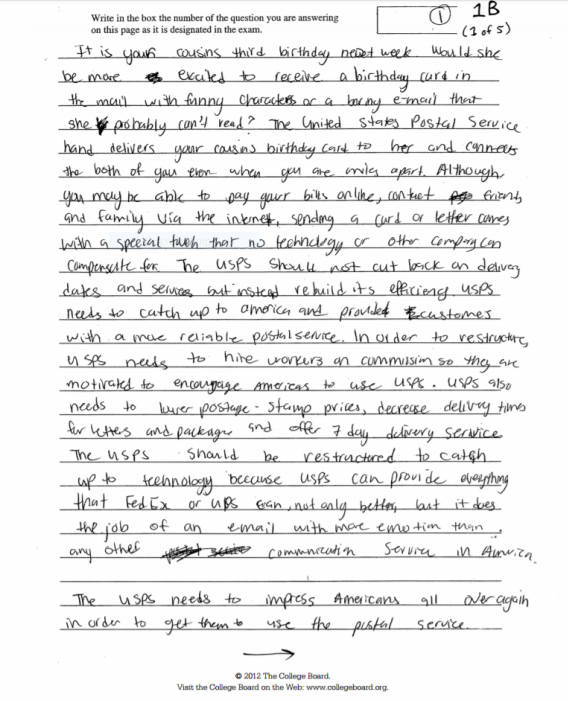 Write in the box the number of the question you are answering
on this page as it is designated in the exam.
1
1B
(1 of 5)
It is your cousins third birthday next week. Would she
be more excited to receive a birthday card in
the mail with funny characters or a boring e-mail that
she probably can't read? The United States Postal Service
hand delivers your cousins birthday card to her and connects
the both of you even when you are miles apart. Although,
you may be able to pay your bills online, contact friends
and family via the internet, sending a card or letter comes
with a special touch that no technology or other company can
compensate for. The USPS should not cut back on delivery
dates and services but instead rebuild its efficiency. USPS
needs to catch up to america and provided customes
with a more reliable postal service. In order to restructure,
USPS needs to hire workers on commission so they are
motivated to encougage Americas to use USPS. USPS also
needs to lower postage-stamp prices, decrease delivry times
for letters and packages and offer 7 day delivery service
The USPS should be restructured to catch
up to technology because USPS can provide everything
that FedEx or UPS can, not only better, but it does
the job of an email with more emotion than
any other communication service in America.
The USPS needs to impress Americans all over again
in order to get them to use the postal service.
© 2012 The College Board.
Visit the College Board on the Web: www.collegeboard.org.